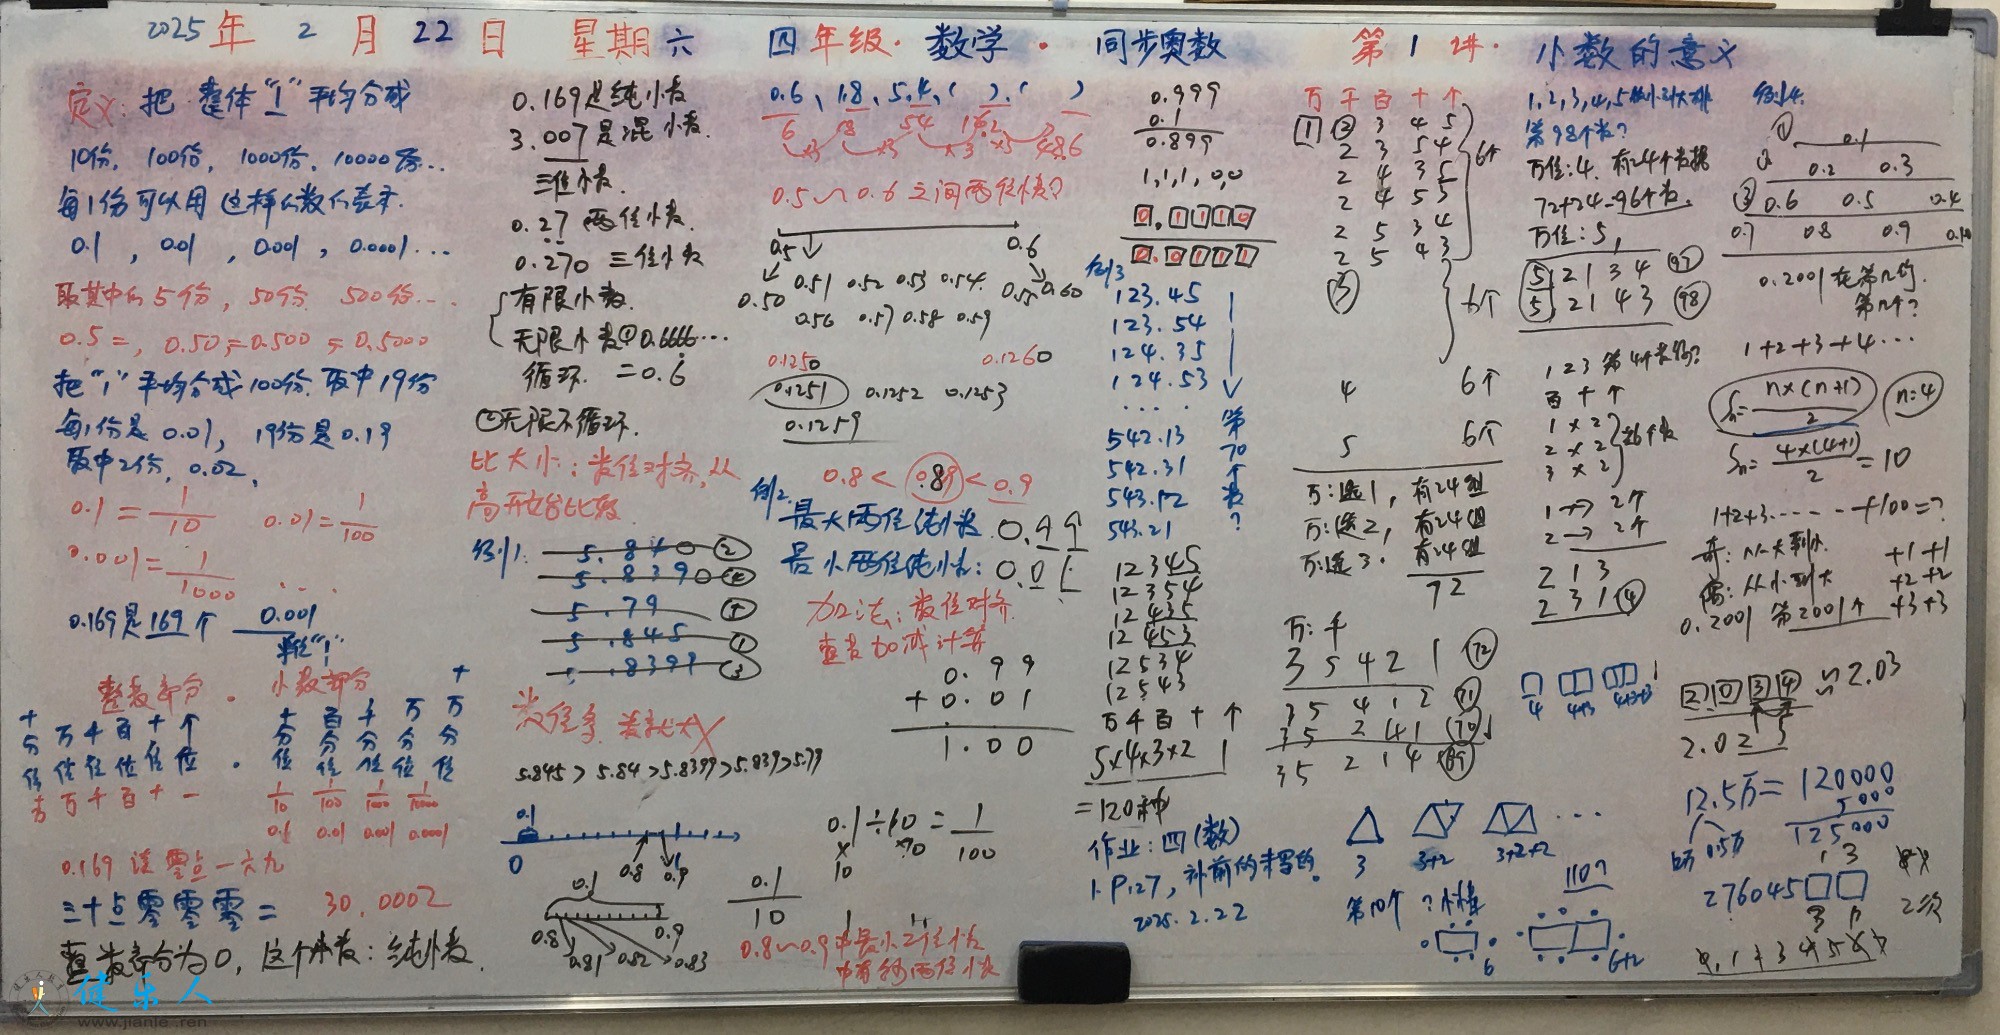 2025年 2月 22日 星期六 四年级·数学·同步奥数 第1讲·小数的意义
定义:把整体"1"平均分成
10份,100份,1000份,10000份...
每1份可以用这样小数表示.
0.1,0.01,0.001,0.0001...
取其中的5份,50份 500份...
0.5=,0.50=0.500=0.5000
把"1"平均分成100份.取中19份
每1份是0.01,19份是0.19
取中2份,0.02,
0.1=1/10 0.01=1/100
0.001=1/1000 ...
0.169是169个 0.001
整数部分 . 小数部分
万 千 百 十 一 1/10 1/100 1/1000 1/10000
0.1 0.01 0.001 0.0001
0.169 读 零点一六九
三十点零零零二 = 30.0002
整数部分为0,这个小数:纯小数.
0.169是纯小数
3.007是混小数.
三位小数.
0.27 两位小数.
0.270 三位小数
有限小数.
无限小数①0.6666...
循环. =0.6
②无限不循环.
比大小:数位对齐,从
高开始比较
例1:
5.840 ②
5.8390 ④
5.79 ⑤
5.845 ①
5.8399 ③
数位多 数就大X
5.845>5.84>5.8399>5.839>5.79
0.1
0 0.8 0.9
0.1
0.8 0.9
0.81 0.82 0.83
0.6、1.8、5.4、( )、( )
6 18 54 162 486
×3 ×3 ×3 ×3
0.5~0.6之间两位小数?
0.5 0.6
0.50 0.51 0.52 0.53 0.54 0.55 0.60
0.56 0.57 0.58 0.59
0.1250 0.1260
0.1251 0.1252 0.1253
0.1259
0.8<0.89<0.9
例2.
最大两位纯小数 0.99
最小两位纯小数:0.01
加法:数位对齐
整数加减计算
0.99
+0.01
1.00
0.1÷10=1/100
0.1/10
0.8~0.9中最小2位小数
中有几两位小数
0.999
0.1
0.899
1,1,1,0,0
0.1110
0.0111
例3
123.45
123.54
124.35
124.53
....
542.13
542.31
543.12
543.21
第70个数?
12345
12354
12435
12453
12534
12543
万千百十个
5×4×3×2 1
=120种
作业:四(数)
1.P127,补前的未写的。
2025.2.22
万 千 百 十 个
1 2 3 4 5
2 3 5 4
2 4 3 5
2 4 5 3
2 5 3 4
2 5 4 3
6个
3 6个
4 6个
5 6个
万:选1,有24组
万:选2,有24组
万:选3.有24组
72
万:千
3 5 4 2 1 72
3 5 4 1 2 71
3 5 2 4 1 70
3 5 2 1 4 69
3 3+2 3+2+2
第10个 ?小棒
1,2,3,4,5从小到大排
第98个数?
万位:4.有24个数
72+24=96个数.
万位:5,
5 2 1 3 4 97
5 2 1 4 3 98
1 2 3 第4个数的?
百 十 个
1×2
2×2
3×2
共6个数
1→2个
2→2个
2 1 3
2 3 1 ④
4 4+3 4+3+3
110?
6 6+2
例4.
① 0.1
② 0.2 0.3
③ 0.6 0.5 0.4
0.7 0.8 0.9 0.10
0.2001在第几行.
第几个?
1+2+3+4...
Sn=n×(n+1)/2 n=4
Sn=4×(4+1)/2=10
1+2+3......+100=?
奇:从大到小 +1+1
偶:从小到大 +2+2
0.2001 第2001个 +3+3
2.034≈2.03
2.025
12.5万=120000
5000
125000
12万 0.5万
276045□□
2次